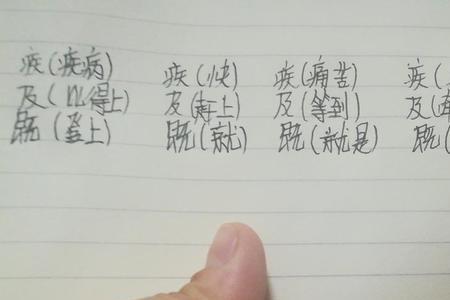 疾(疾病) 疾(快) 疾(痛苦) 疾(
及(以得上) 及(赶上) 及(等到) 及(
既(登上) 既(就) 既(就是) 既(